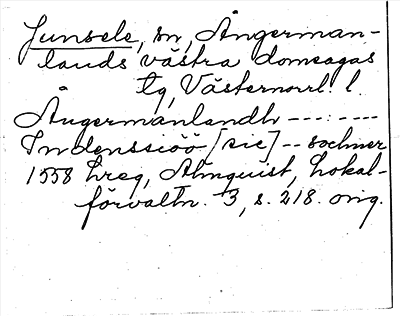 Junsele, sn, Ångerman-
lands västra domsagas
tg, Västernorrl. l.
Ångermanlandh --- : ----
Indenssiöö [sic] -- sochner
1558 hreg, Almquist, Lokal-
förvaltn. 3, s. 218. orig.